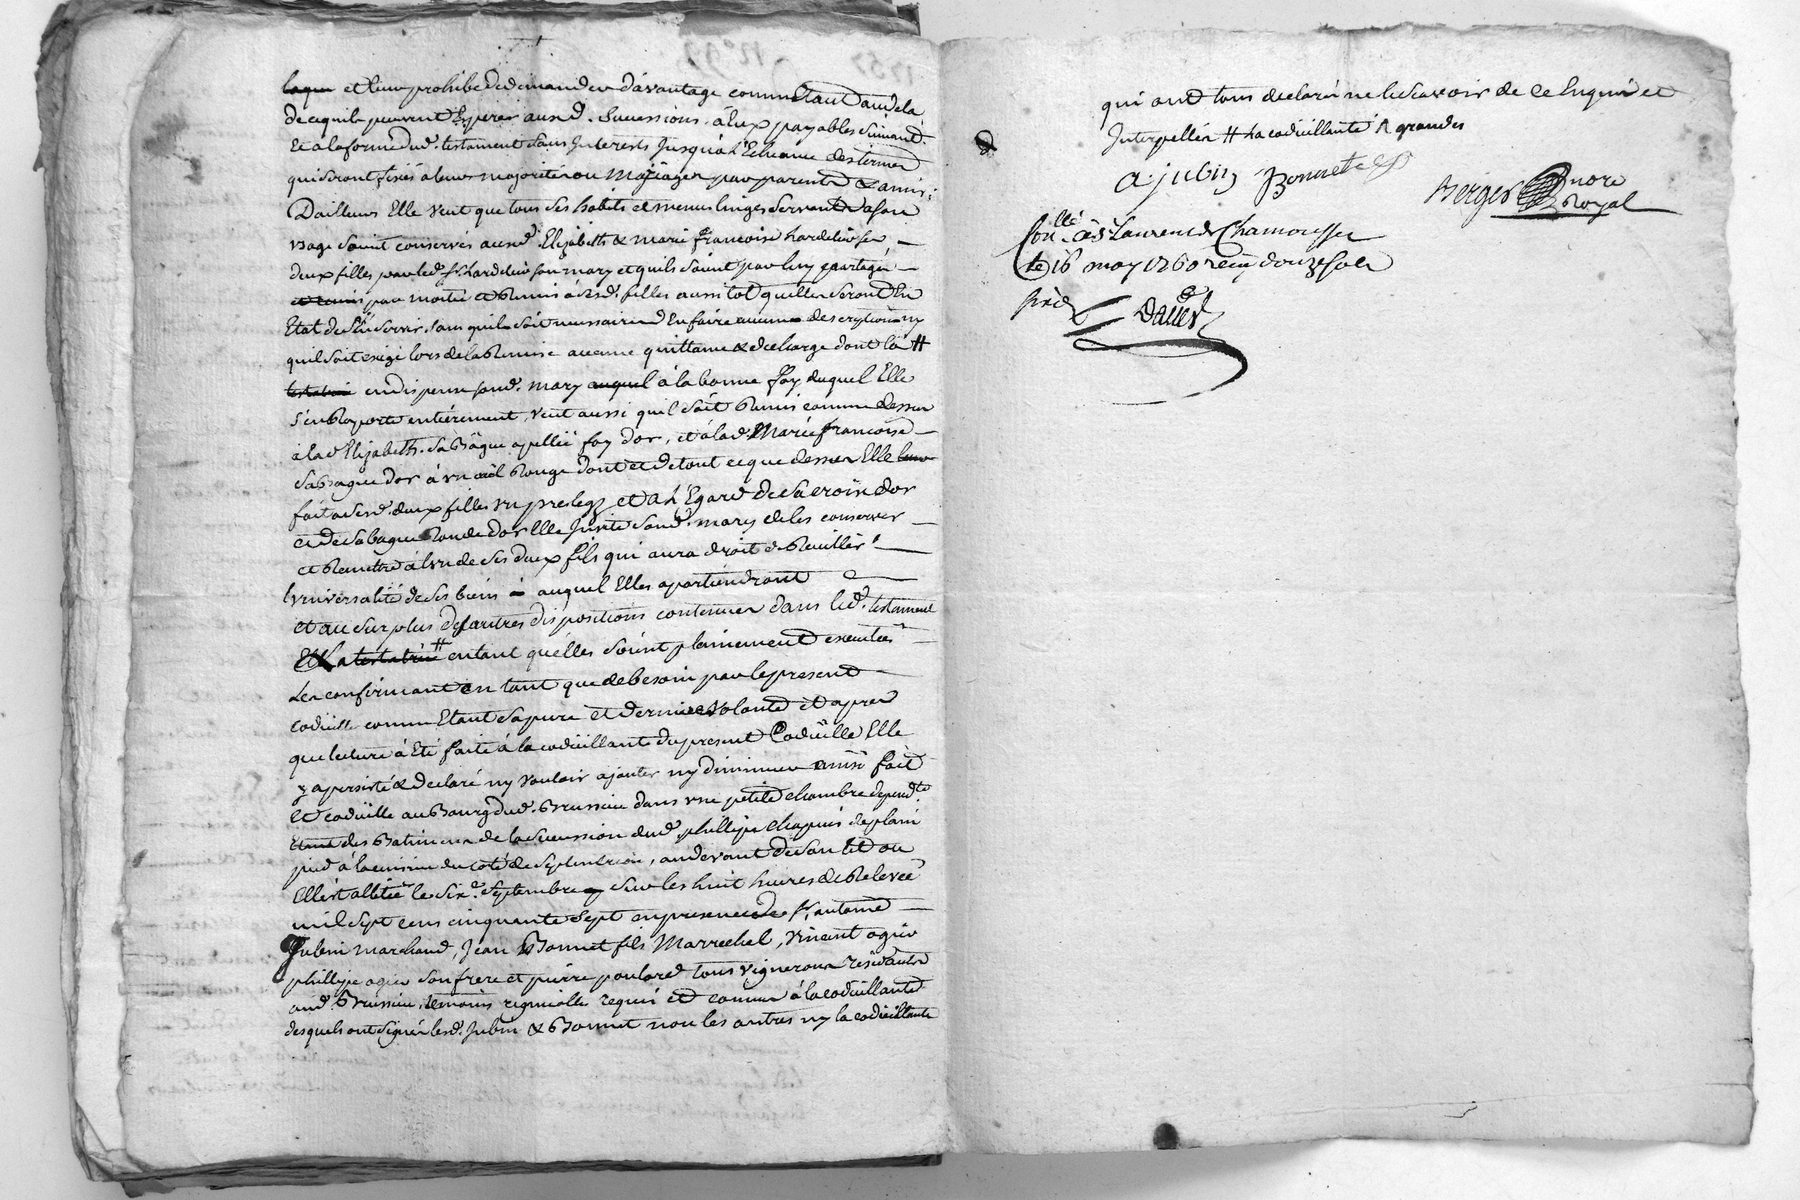 et leur prohibe de demander davantage comm Etant audela
de ce quils peuvent Esperer ausd. Sucessions, à Eux payables Suivant
Et à la forme dud. testament sans Interests Jusqu'à l'Echeance des termes
qui seront fixés a leurs majorités ou Mariages par parents & amis;
Dailleurs Elle veut que tous ses habits et menus linges servant a son
usage soint conservés ausd. Elizabeth & marie francoise hardelin ses
deux filles par led. sr. hardelin son mary et quils soint par luy partagés
par moitié et Remis à sesd. filles aussi tot quelles seront En
Etat de s'En servir, sans quil soit necessaire d'En faire aucune description ny
quil soit exigé lors de la Remise aucune quittance & decharge dont la #
testatrice en dispense sond. mary auquel à la bonne foy duquel Elle
s'en Raporte entiérement, veut aussi quil soit Remis comme dessus
à lad. Elizabeth. sa Bague apellée foy d'or, et à lad. Marie francoise
sa Bague d'or à un œil Rouge dont et de tout ce que dessus Elle leur
fait a sesd. deux filles un prelegz et a l'Egard de sa croix d'or
et de sa bague Ronde d'or Elle Invite sond. mary de les conserver
et Remettre à l'un de ses deux fils qui aura droit de Reuillir
l'universalité de ses biens auquel Elles apartiendront
et au surplus des autres dispositions contenues dans led. testament
Et la testatrice # entant quelles soint pleinement executées
Les confirmant en tant que de besoin par le present
codicille comm Etant sa pure et derniere volonté et apres
que lecture à Eté faite à la codicillante du present Codicille Elle
y a persisté & declaré ny vouloir ajouter ny diminuer ainsi fait
et codicille au Bourg dud. Brussieu dans une petite chambre depend.te
des Batimens de la sucession dud. phillipe chapuis de plain
pied à la cuisine du coté de septentrion, au devant de son lit ou
Elle est allitée le six.e septembre sur les huit heures de Relevée
mil sept cens cinquante sept en presence de sr. antoine
Jubin marchand, Jean Bonnet fils Marechal, Vincent ogier
phillipe ogier son frere et pierre poulard tous vignerons residants
aud. Brussieu, temoins requis et connus à la codicillante
desquels ont signé lesd. Jubin & Bonnet non les autres ny la codicillante
qui ont tous declaré ne le scavoir de ce Enquis et
Interpellés # la codicillante
A. jubin Bonnet
Berger nore Royal
Conllé à St Laurent de Chamousset
le 16 may 1760 reçu douze sols